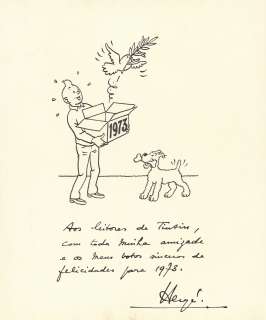 1973
Aos leitores de Tintin,
com toda minha amizade
e os meus votos sinceros de
felicidades para 1973.
Hergé.